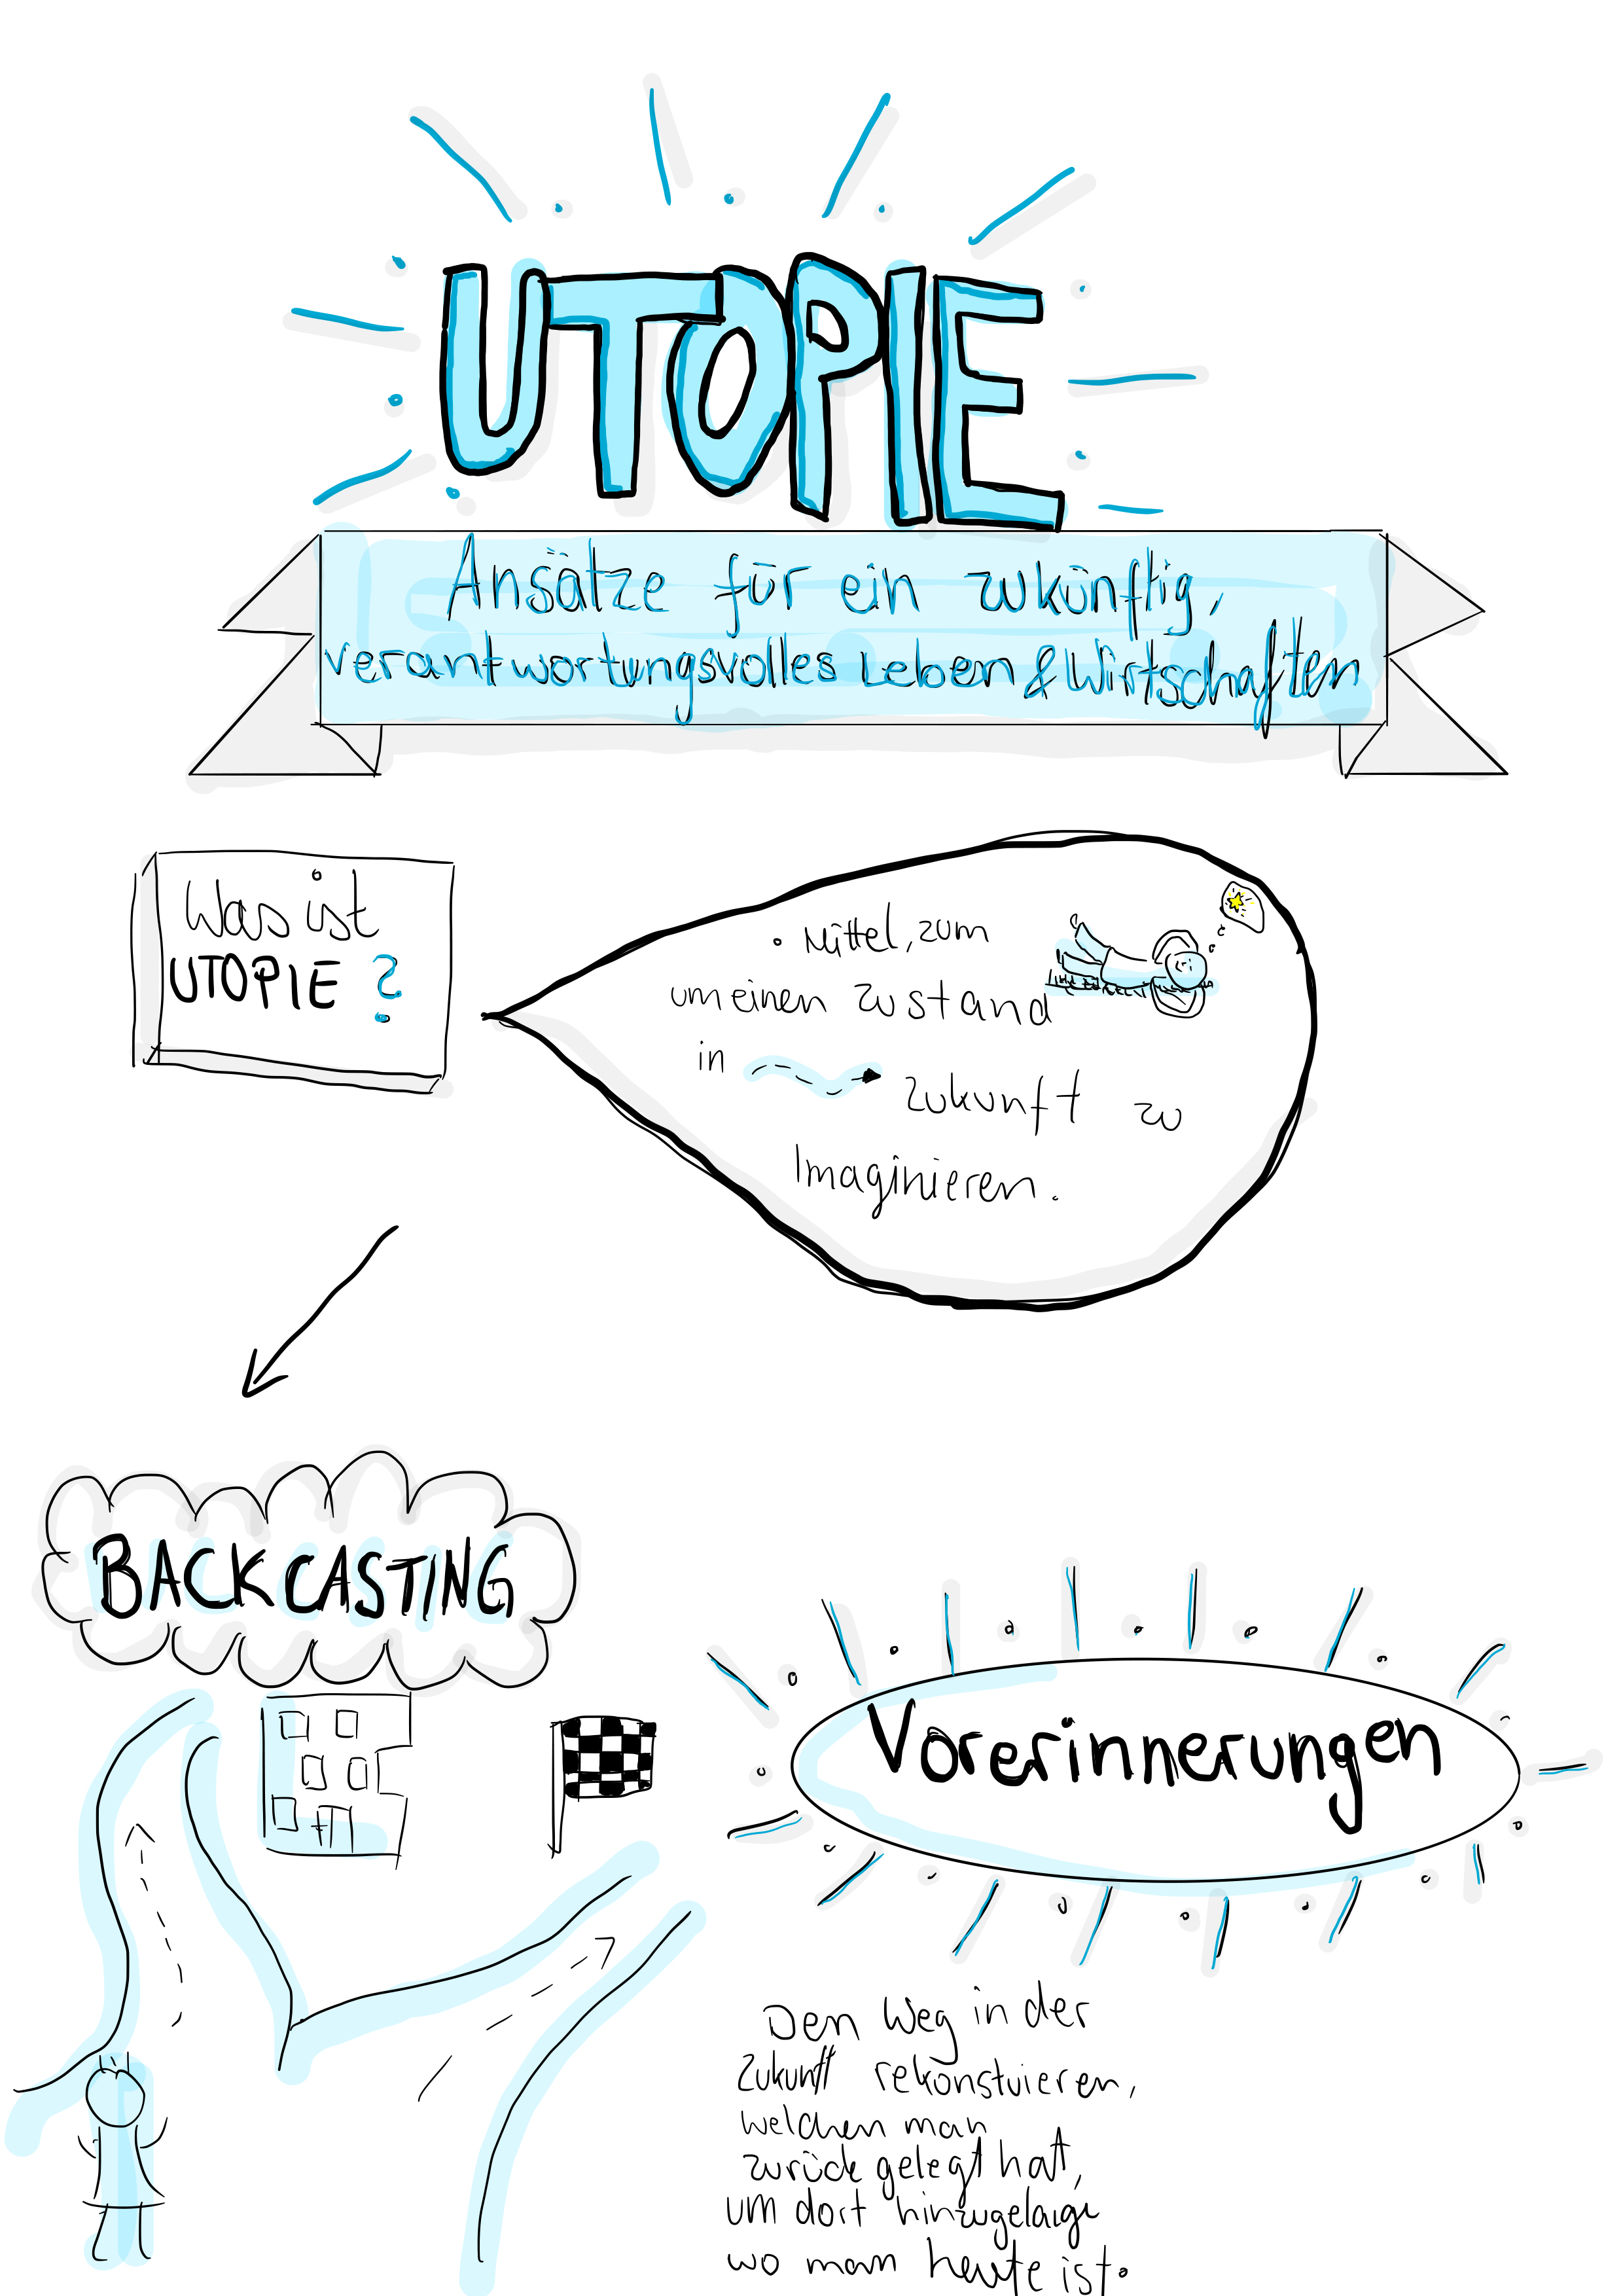 UTOPIE
Ansätze für ein zukünftig,
verantwortungsvolles Leben & Wirtschaften
Was ist
UTOPIE ?
• Mittel, zum
um einen Zustand
in
Zukunft zu
Imaginieren.
BACKCASTING
Vorerinnerungen
Den Weg in der
Zukunft rekonstuieren,
welchen man
zurückgelegt hat,
um dort hinzugelange
wo man heute ist.